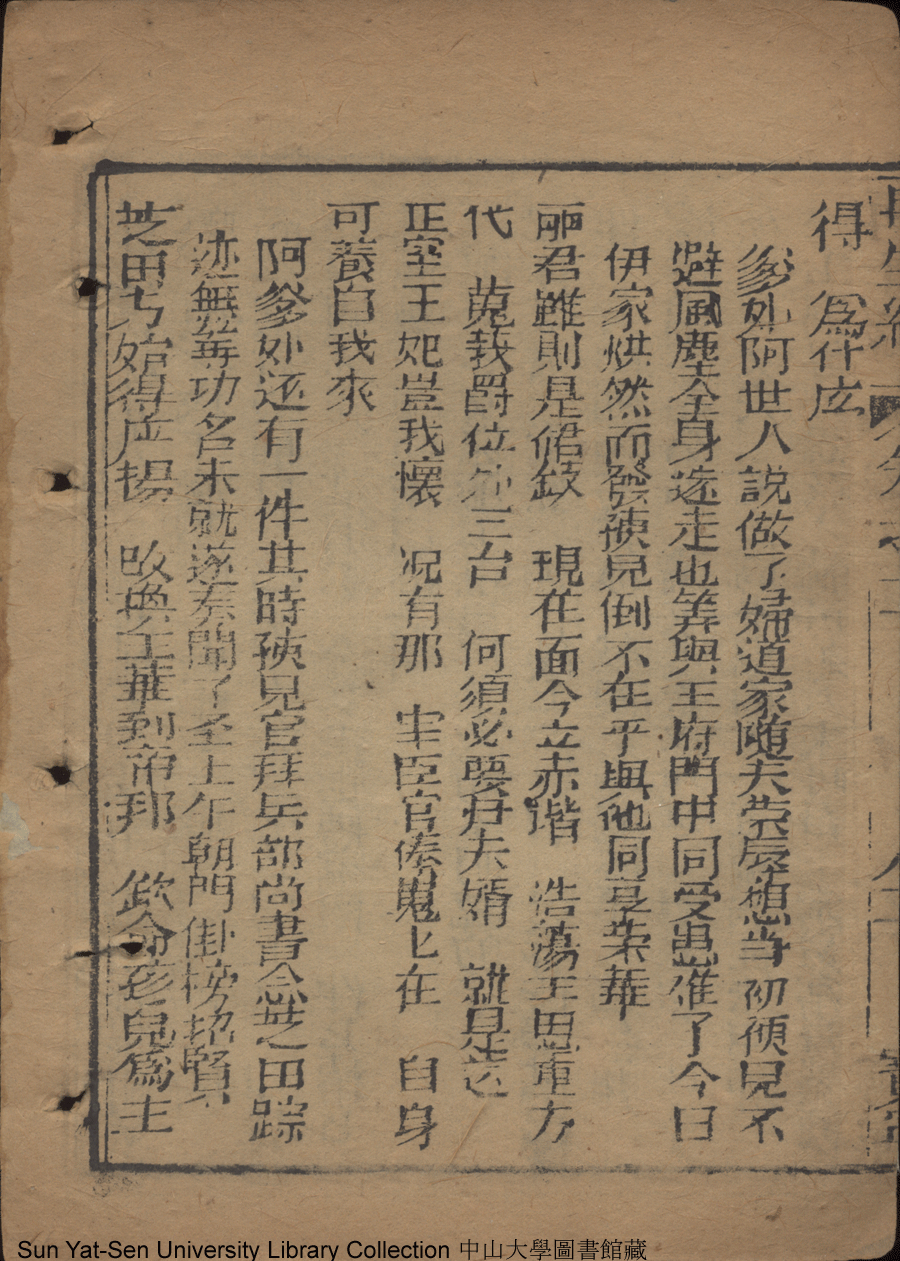 得　爲什庅
爹处阿世人説做了婦道家随夫荣辱想当初㛤見不
避風塵全身逃走也筭與王府門中同受患难了今日
伊家烘然而發㛤見倒不在乎與他同享荣華
丽君雖則是裙釵　現在面今立赤墀　浩蕩主恩重万
代　蒐我爵位列三台　何須必要尹夫婿　就是这
正室王妃豈我懷　况有那　宰臣官俸嵬匕在　自身
可養自我來
阿爹处还有一件其時㛤見官拜兵部尚書念芝田踪
迹無簿功名未就遂奏聞了圣上午朝門掛榜招賢
芝田方始得庒揚　改換王華到帝邦　欽命孩兒爲主
Sun Yat-Sen University Library Collection 中山大學圖書館藏